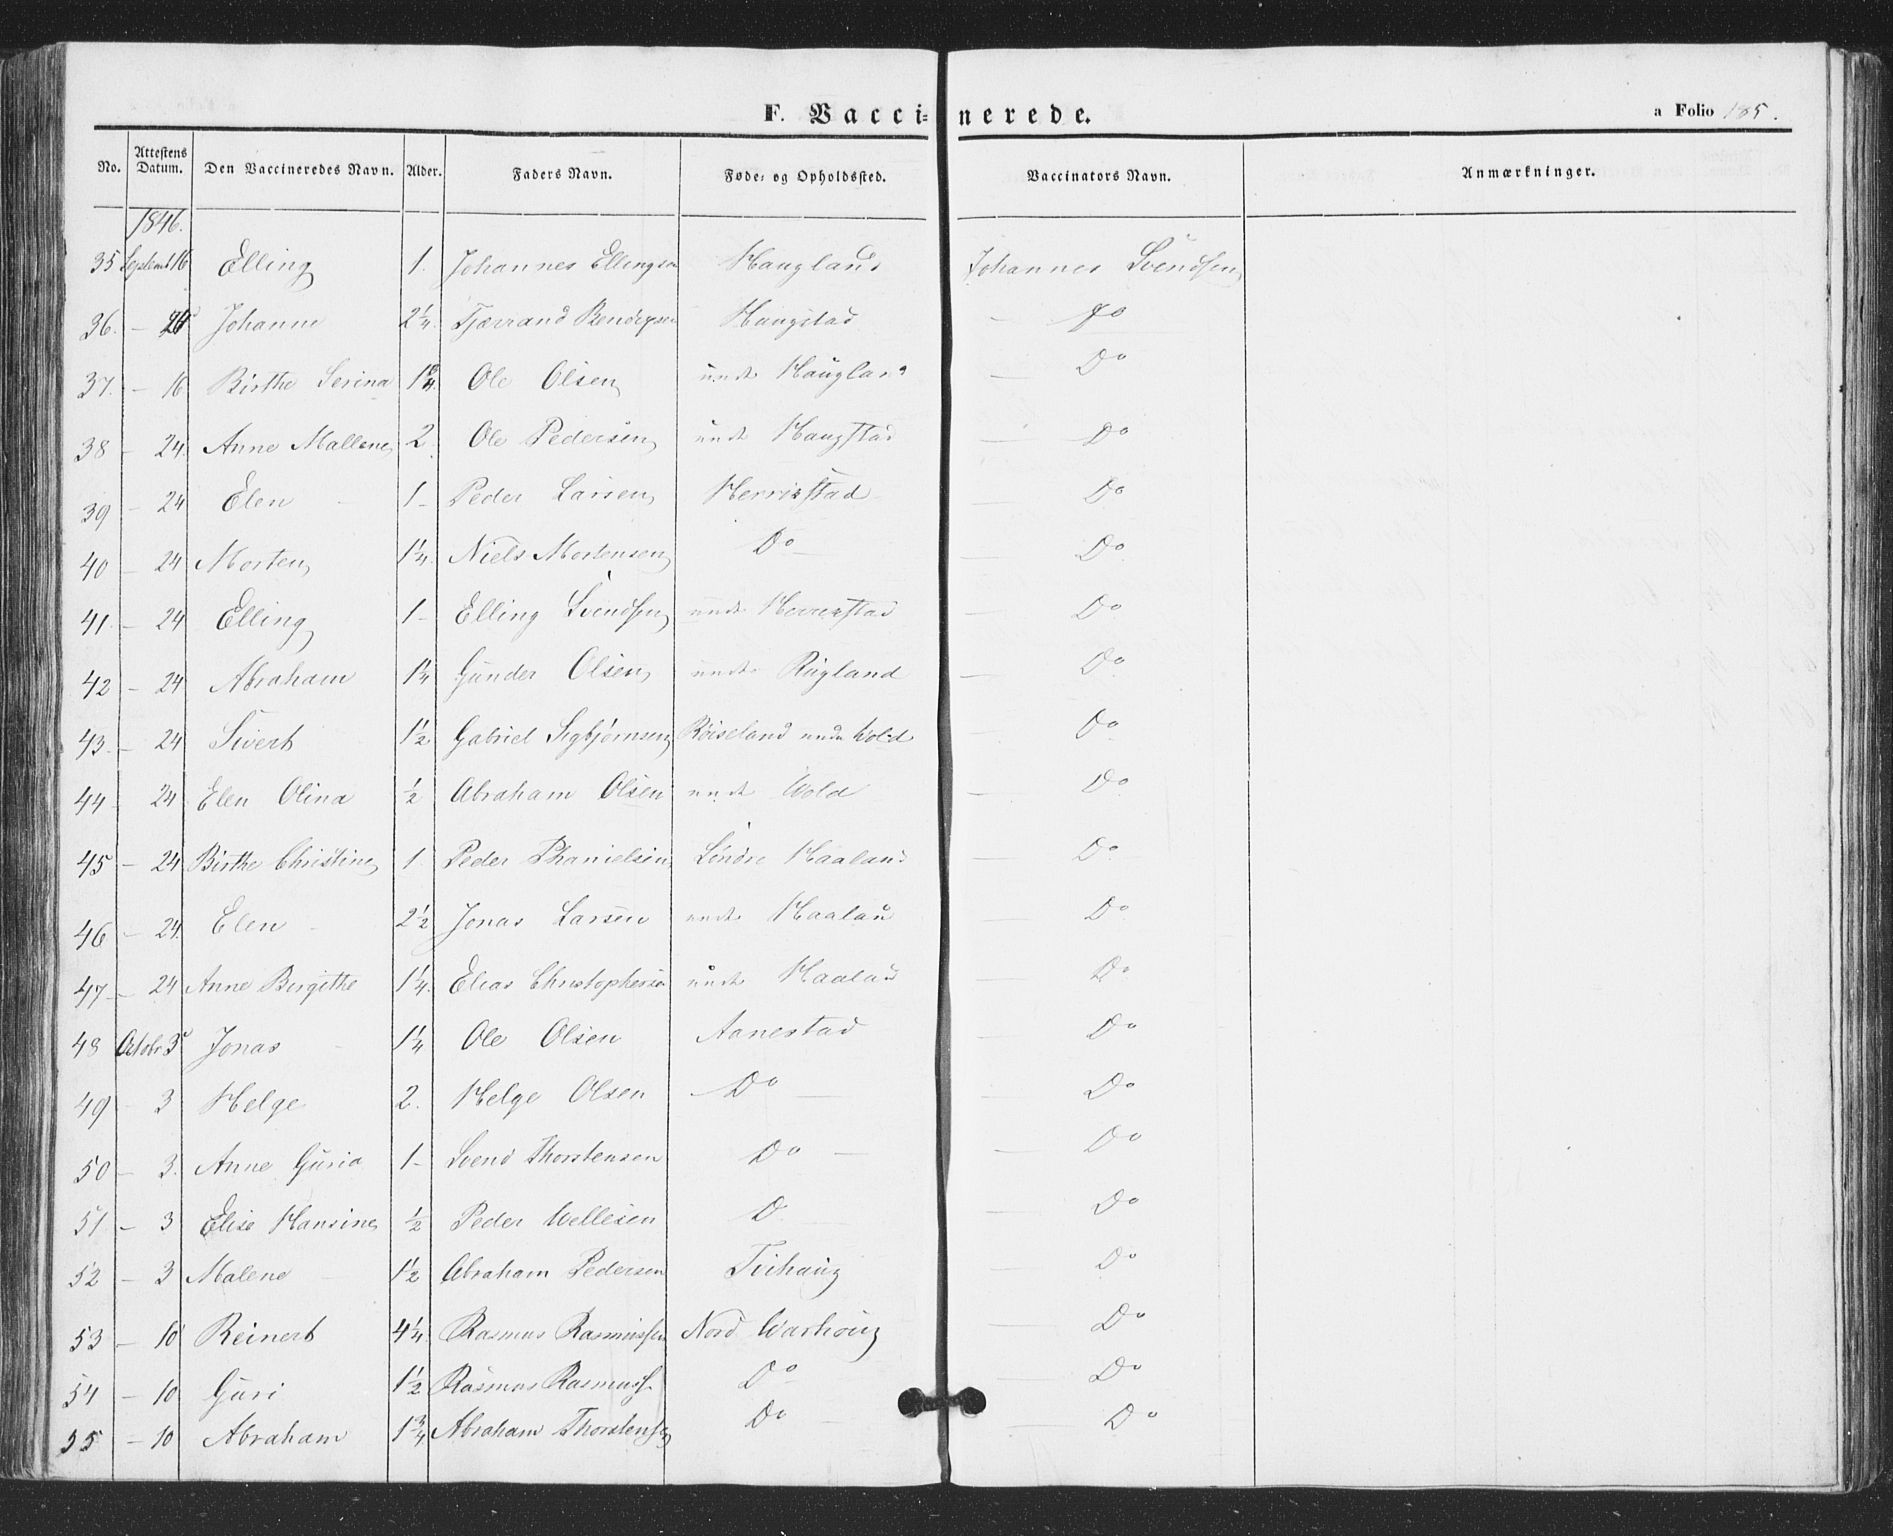 F. Vaccinerede.
a Folio 185.
No. Attestens Datum. Den Vaccineredes Navn. Alder. Faders Navn. Føde- og Opholdssted. Vaccinators Navn. Anmærkninger.
1846.
35 Septembr 16 Elling 1. Johannes Ellingsen Haugland Johannes Svendsen
36. — Johanne 2 1/4. Tjærrand Haugstad — Do
37. — 16 Birthe Serina 1 3/4. Ole Olsen unde Haugland — Do
38 — 24. Anne Mallene 2. Ole Pedersen unde Haugstad — Do
39 — 24 Elen 1 — Peder Larsen Herrisstad — Do
40 — 24 Morten 1 1/4. Niels Mortensen Do — Do
41. — 24 Elling 1 — Elling Svendsen unde Herrestad — Do
42 — 24 Abraham 1 1/4 Gunder Olsen unde Røgland — Do
43. — 24 Sivert 1 1/2 Gabriel Sigbjørnsen Røiseland unde Wold Do
44 — 24 Elen Olina 1/2 Abraham Olsen unde Wold — Do
45 — 24 Birthe Christine 1. Peder Søndre Haaland — Do
46 — 24. Elen — 2 1/2 Jonas Larsen unde Haaland — Do
47 — 24 Anne Birgithe 1 1/4. Elias Christophersen unde Haaland — Do
48 Octobr 3 Jonas — 1 1/4 Ole Olsen Aanestad — Do
49 — 3 Helge 2. Helge Olsen — Do — — Do
50 — 3. Anne Guria 1 — Svend Thorstensen Do — — Do
51 — 3 Elise Hansine 1/2 Peder Wellesen D — Do
52 — 3 Malene — 1 1/2 Abraham Pedersen Tuhaug — Do
53 — 10 Reinert 4 1/4 Rasmus Rasmussen Nord Warhoug — Do
54 — 10 Guri 1 1/2 Rasmus Rasmuss. Do — — Do
55 — 10 Abraham 1 3/4 Abraham Thorstensen Do — — Do